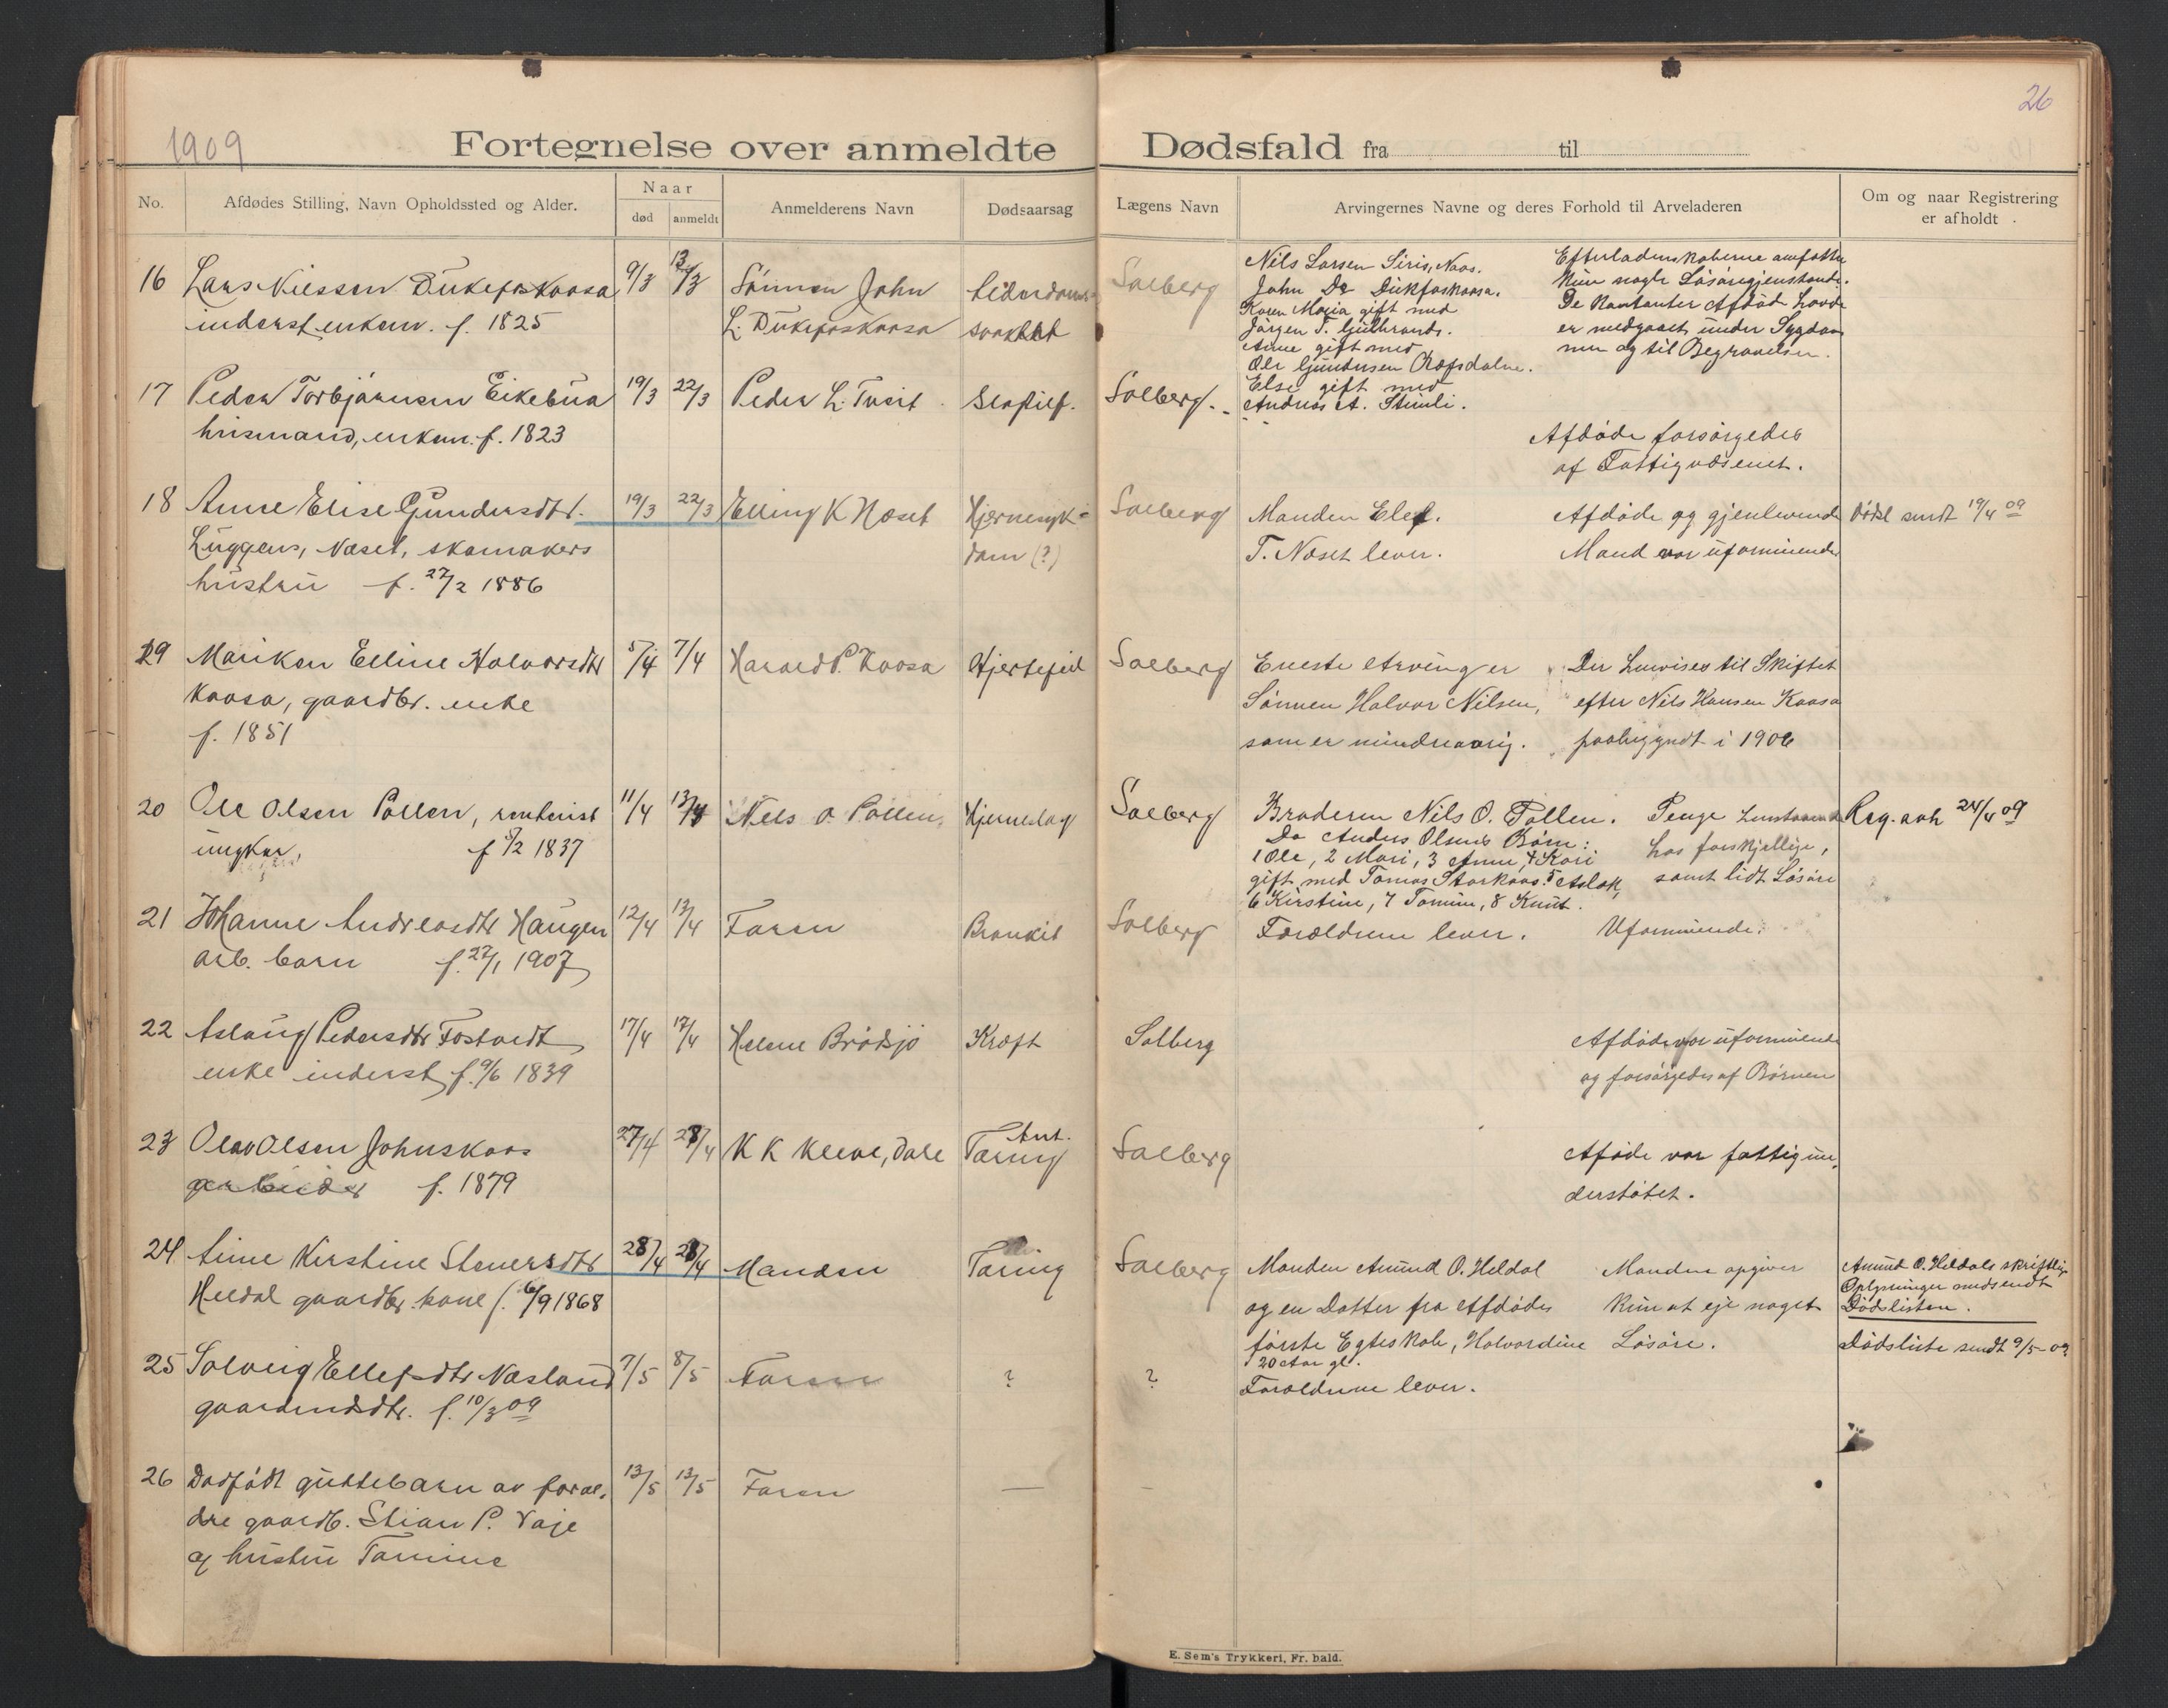 1909
26
Fortegnelse over anmeldte Dødsfald fra til
No.
Afdødes Stilling, Navn Opholdssted og Alder.
Naar
død
anmeldt
Anmelderens Navn
Dødsaarsag
Lægens Navn
Arvingernes Navne og deres Forhold til Arveladeren
Om og naar Registrering
er afholdt
16 Lars Nielssen
inderst, enkem. f. 1825
9/3
13/3
Sønnen John
L.
Alderdoms-
svakhet
Solberg
Nils Larsen Siris, Naas.
John Do
Karen Maria gift med
Jörgen T. Gulbrands.
Anne gift med
Ole Gundersen
Else gift med
Andreas A. Stimli.
Efterladenskaberne omfatter
kun nogle Løsøregjenstande.
De Kontanter Afdøde havde
er medgaaet under Sygdom
men og til Begravelsen.
17 Peder Torbjørnsen Eikebua
husmand, enkem. f. 1823
19/3
22/3
Peder L. Tveit
Slagtilf.
Solberg.
Afdøde forsørgedes
af Fattigvæsenet.
18 Anne Elise Gundersdtr.
Luggens, Næset, skomakers
hustru f. 27/2 1886
19/3
22/3
Elling K Næset
Hjernesyk-
dom (?)
Solberg
Manden Elef.
T. Næset lever.
Afdøde og gjenlevende
Mand var uformuende
Dødsl sendt 19/4 09
19 Mariken Elline Halvorsdtr
Kaasa, gaardbr. enke
f. 1851
5/4
7/4
Harald P. Kaasa
Hjertefeil
Solberg
Eneste Arving er
Sønnen Halvor Nilsen,
som er mindreaarig.
Der henvises til Skiftet
efter Nils Hansen Kaasa
paabegyndt i 1906
20 Ole Olsen Pollen, rentenist
ungkar, f 5/2 1837
11/4
13/4
Nils O. Pollen
Hjerneslag
Solberg
Broderen Nils O. Pollen.
Do Anders Olsens Børn:
1 Ole, 2 Mari, 3 Anne, 4 Kari
gift med Tomas Storkaas. 5 Aslak,
6 Kirstine, 7 Tomine, 8 Knut.
Penge henstaaende
hos forskjellige,
samt lidt Løsøre
Reg. avh 24/4 09
21 Johanne Andreasdtr Haugen
arb. barn f. 27/1 1907
12/4
13/4
Faren
Bronkit
Solberg
Forældrene lever.
Uformuende.
22 Aslaug Pedersdtr Fostvedt
enke inderst f. 9/6 1839
17/4
17/4
Helene Brødsjø
Kræft
Solberg
Afdøde var uformuende
og forsørgedes af Børnen
23 Olav Olsen Johnskaas
arbeider f. 1879
27/4
28/4
K K Kleve, Dale
Ant.
Tæring
Solberg
Aføde var fattigun-
derstøtet.
24 Anne Kirstine Stenersdtr
Heldal gaardbr. kone f. 6/9 1868
28/4
28/4
Manden
Tæring
Solberg
Manden Amund O. Heldal
og en Datter fra Afdødes
første Egteskab, Halvordine
20 Aar gl.
Manden opgiver
kun at eje noget
Løsøre.
Amund O. Heldals skriftlig
Oplysninger medsendt
Dødslisten.
Dødsliste sendt 9/5-09
25 Solveig Ellefsdtr Næsland
gaardmdsdtr. f. 10/3 09
7/5
8/5
Faren
?
?
Forældrene lever.
26 Dødfødt guttebarn av foræl-
dre gaardb. Stian P. Vaje
og hustru Tomine
13/5
13/5
Faren
—
—
E. Sem's Trykkeri, Fr. hald.